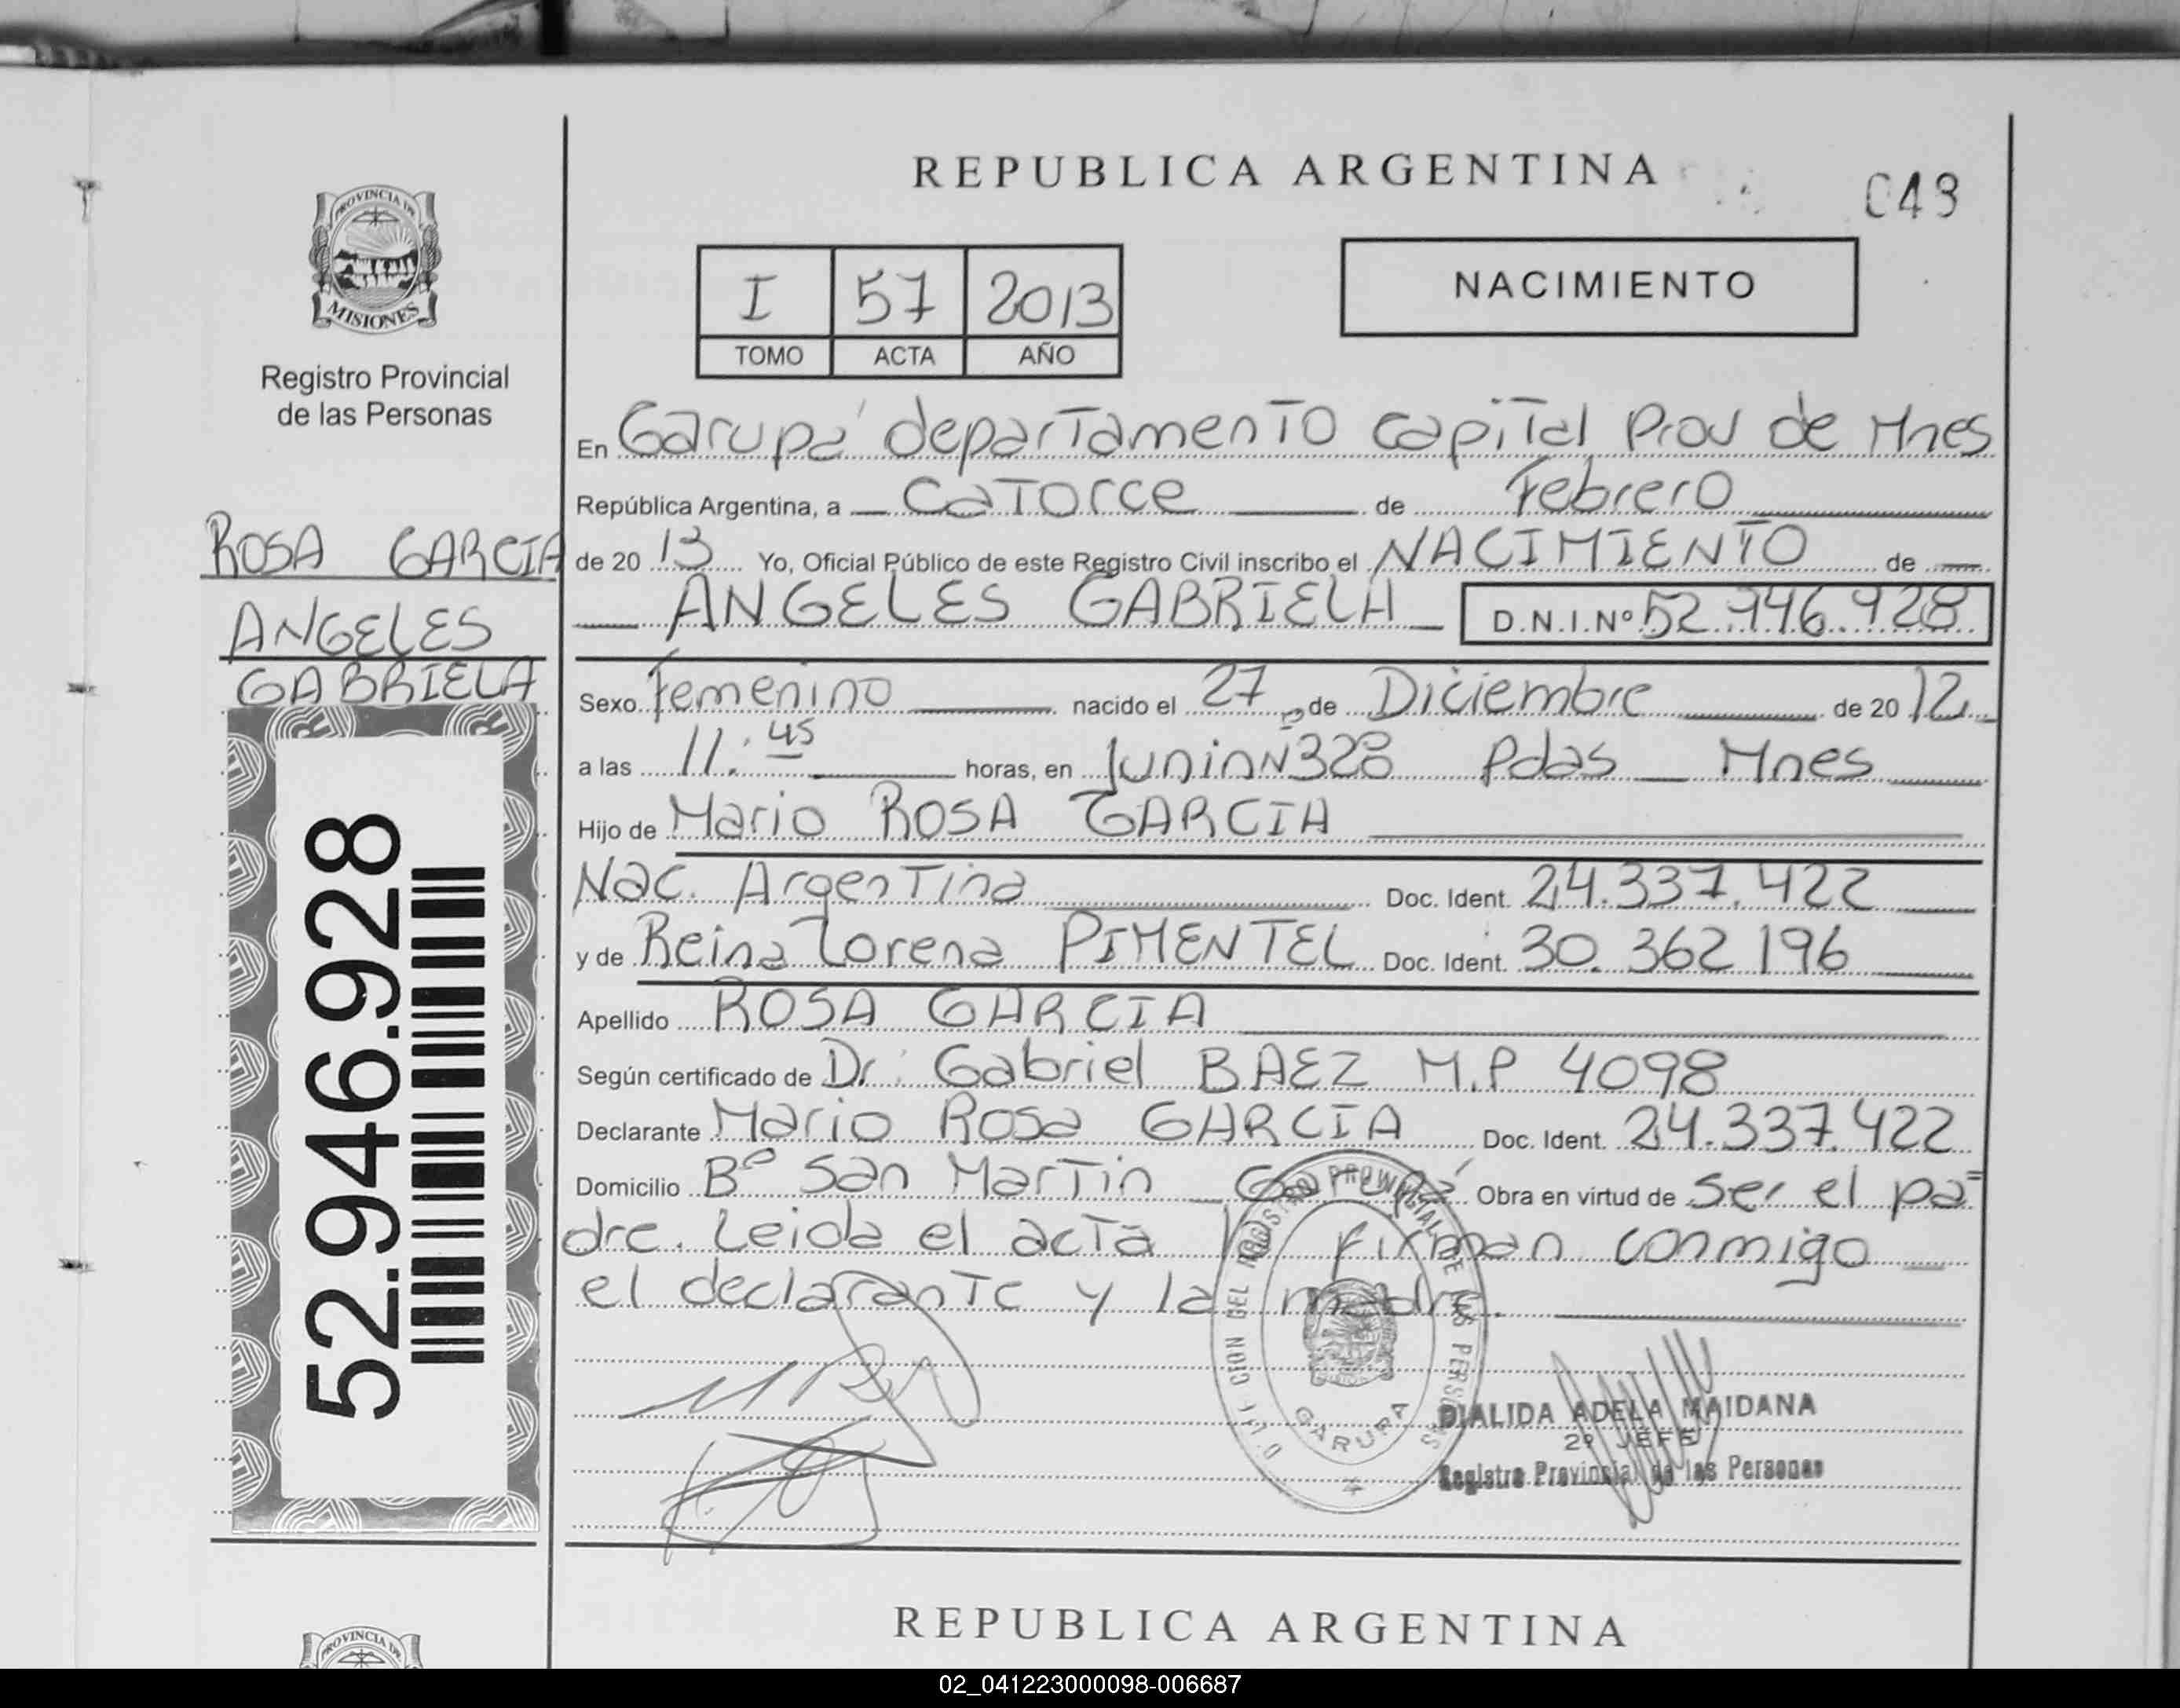 REPUBLICA ARGENTINA
049
PROVINCIA DE
MISIONES
Registro Provincial
de las Personas
I 57 2013
TOMO ACTA AÑO
NACIMIENTO
ROSA GARCIA
ANGELES
GABRIELA
52.946.928
En Garupá departamento Capital Prov de Mnes
República Argentina, a Catorce de Febrero
de 2013 Yo, Oficial Público de este Registro Civil inscribo el NACIMIENTO de
ANGELES GABRIELA D.N.I.Nº 52.946.928
Sexo Femenino nacido el 27 de Diciembre de 2012
a las 11:45 horas, en Junin Nº 328 Pdas Mnes
Hijo de Mario ROSA GARCIA
Nac. Argentina Doc. Ident. 24.337.422
y de Reina Lorena PIMENTEL Doc. Ident. 30.362 196
Apellido ROSA GARCIA
Según certificado de Dr. Gabriel BAEZ M.P 4098
Declarante Mario Rosa GARCIA Doc. Ident. 24.337.422
Domicilio Bº San Martin Garupá Obra en virtud de Ser el pa=
dre. Leida el acta la firman conmigo
el declarante y la madre.
DIRECCION DEL REGISTRO PROVINCIAL DE LAS PERSONAS
GARUPA
DIALIDA ADELA MAIDANA
2º JEFE
Registro Provincial de las Personas
REPUBLICA ARGENTINA
PROVINCIA DE
02_041223000098-006687